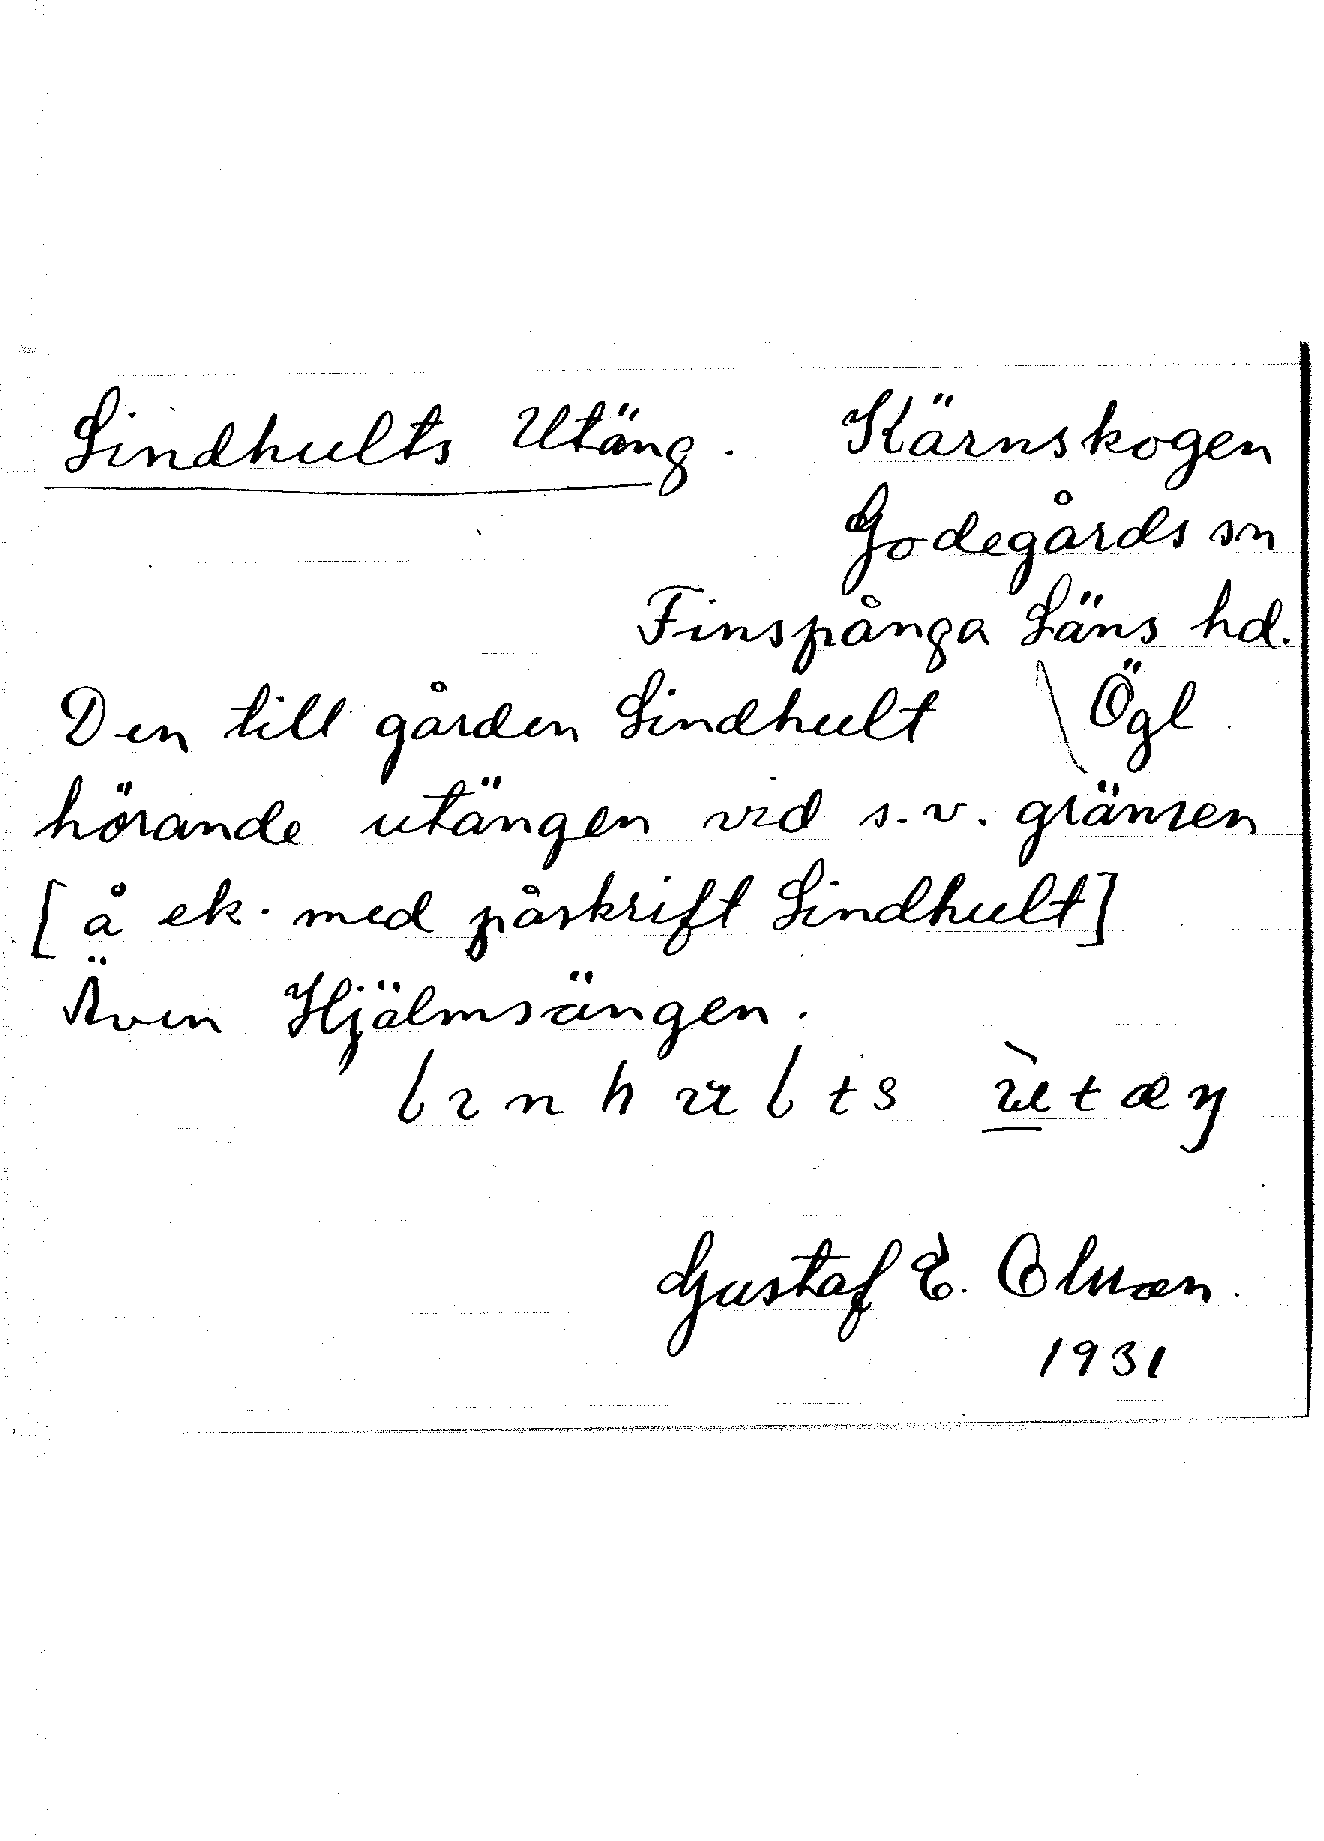 Lindhults Utäng. Kärnskogen
Godegårds sn
Finspånga Läns hd.
Den till gården Lindhult Ögl
hörande utängen vid s.v. gränsen
[å ek. med påskrift Lindhult]
Även Hjälmsängen.
Gustaf E.
1931